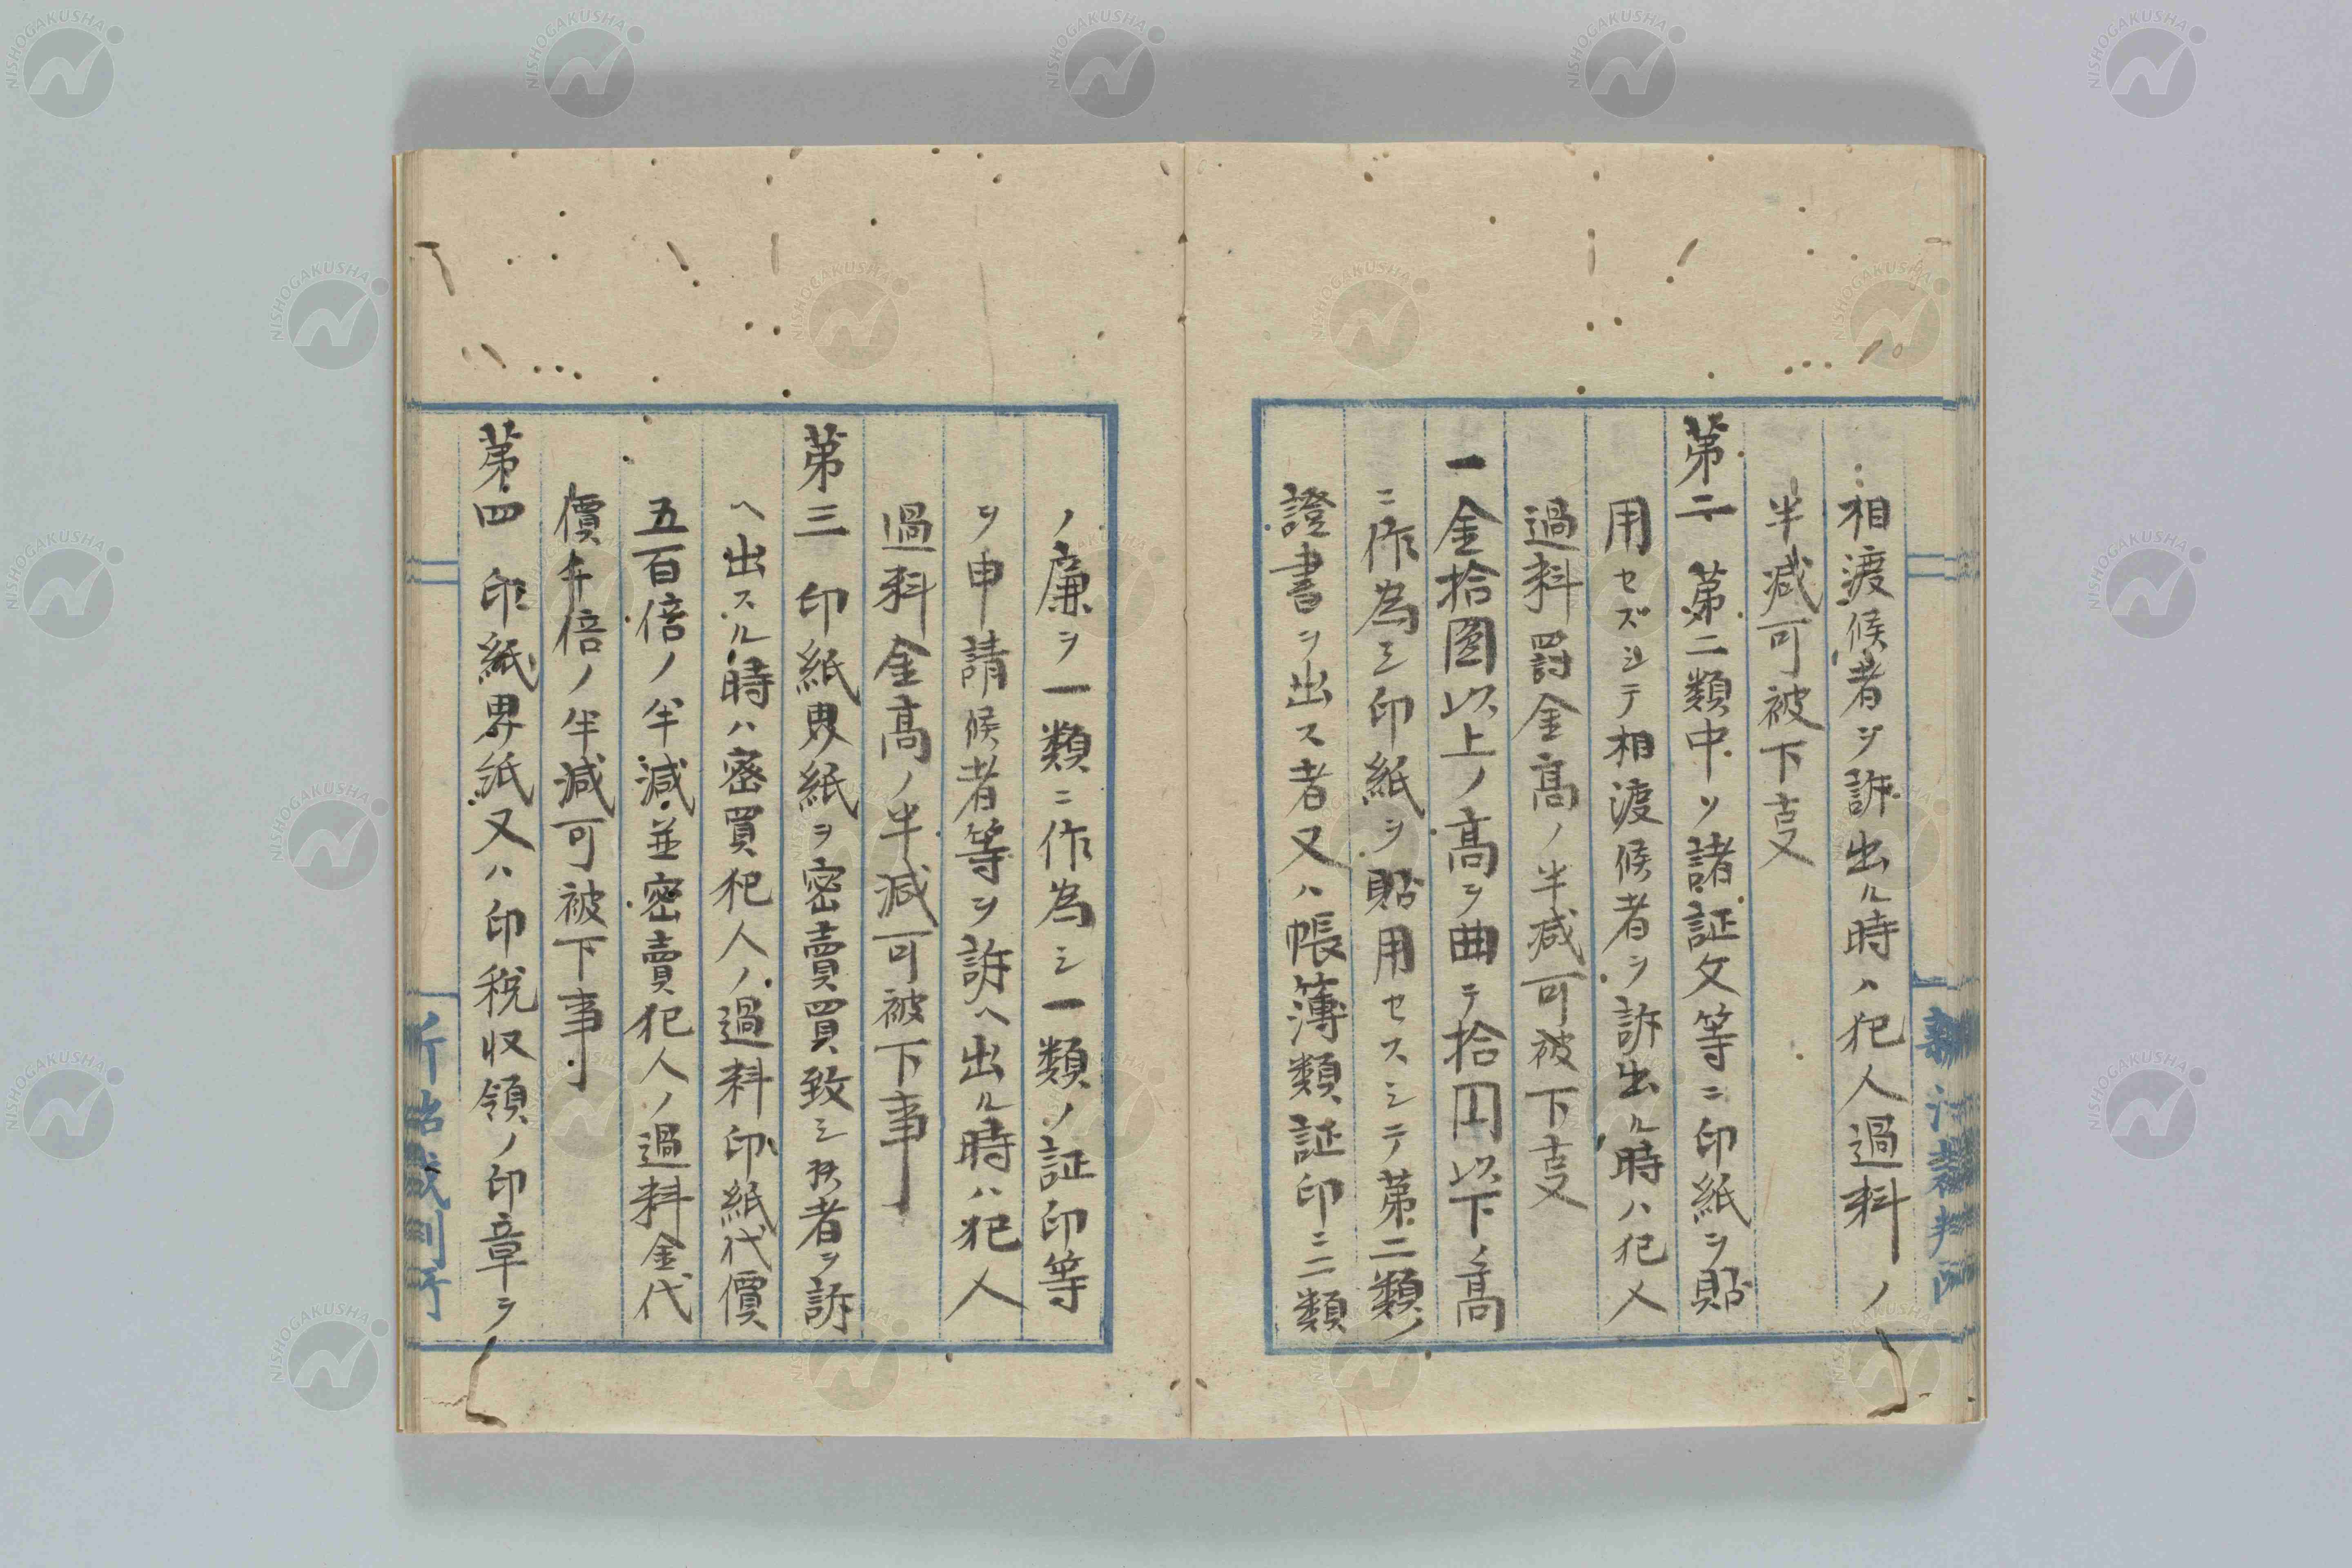 相渡候者ヲ訴出ル時ハ犯人過料ノ
半減可被下叓
第二 第二類中ノ諸証文等ニ印紙ヲ貼
用セズシテ相渡候者ヲ訴出ル時ハ犯人
過料罰金高ノ半減可被下叓
一金拾圓以上ノ高ヲ曲テ拾円以下ノ高
ニ作為シ印紙ヲ貼用セスシテ第二類ノ
證書ヲ出ス者又ハ帳簿類証印ニ二類
ノ廉ヲ一類ニ作為シ一類ノ証印等
ヲ申請候者等ヲ訴ヘ出ル時ハ犯人
過料金高ノ半減可被下事
第三 印紙界紙ヲ密賣買致シ候者ヲ訴
ヘ出スル時ハ密買犯人ノ過料印紙代價
五百倍ノ半減並密賣犯人ノ過料金代
價千倍ノ半減可被下事
第四 印紙界紙又ハ印税収領ノ印章ヲ
NISHOGAKUSHA